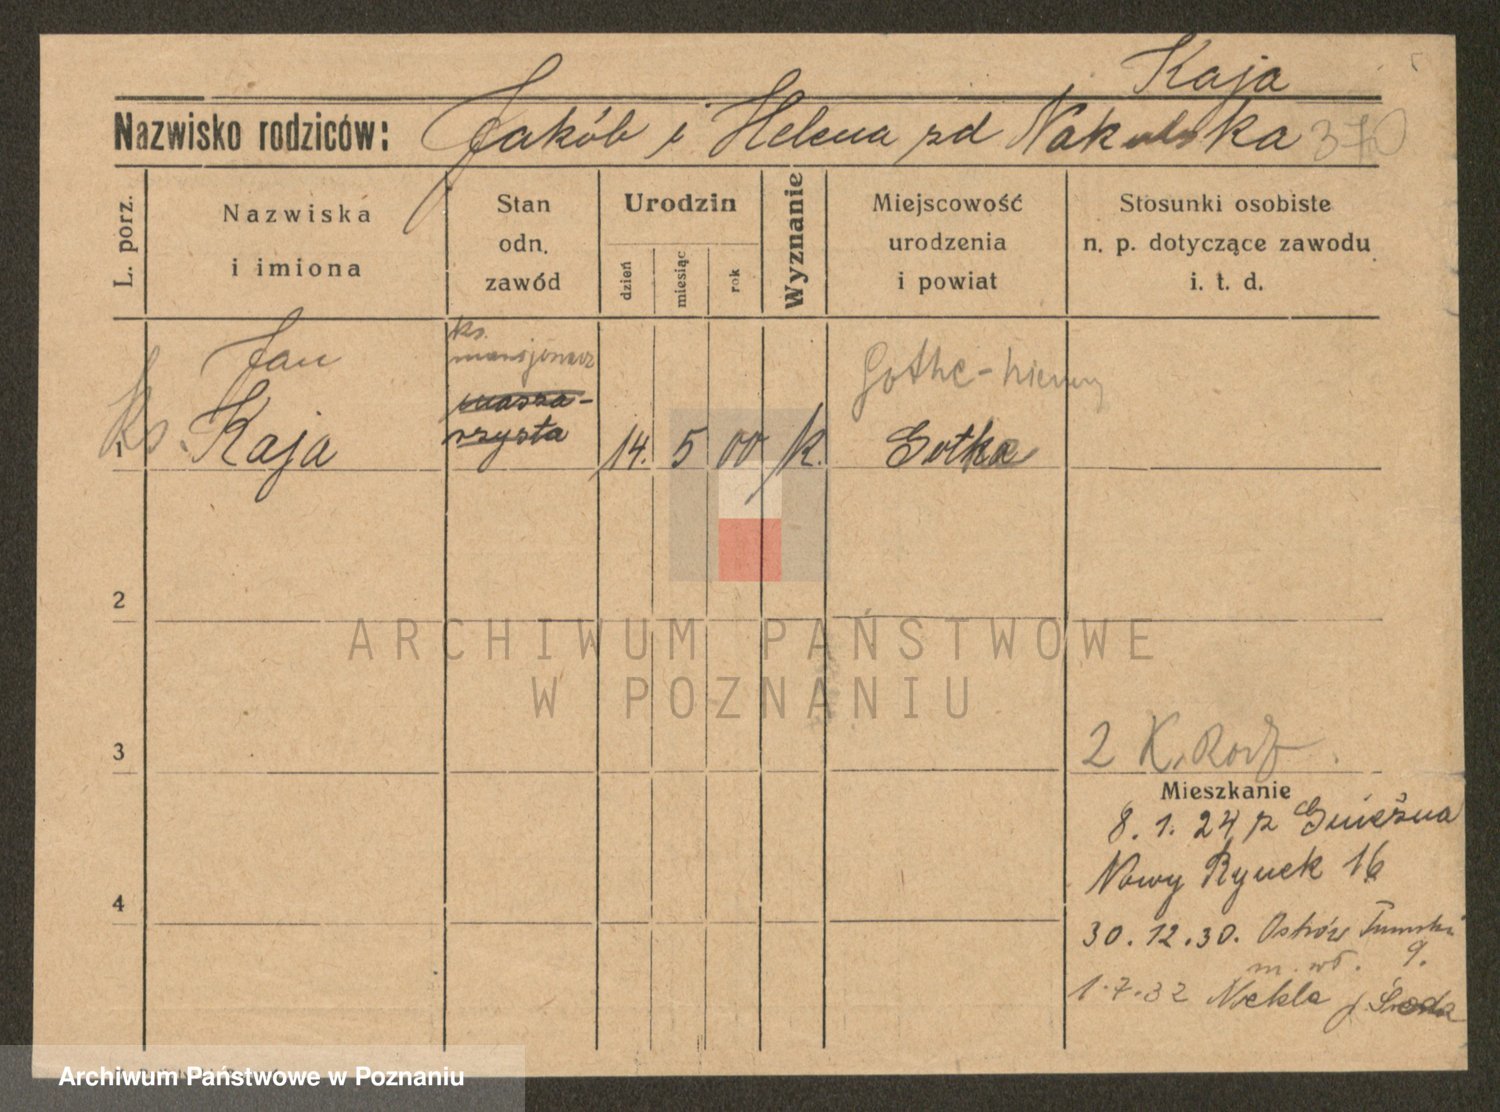 Kaja
Nazwisko rodziców: Jakób i Helena zd Nakulska 370
L. porz.
Nazwiska
i imiona
Stan
odn.
zawód
Urodzin
dzień
miesiąc
rok
Wyznanie
Miejscowość
urodzenia
i powiat
Stosunki osobiste
n. p. dotyczące zawodu
i. t. d.
Jan
ks. Kaja
ks.
mansjonarz
masza-
rzysta
14. 5 00 k.
Gotha
1
2
3
4
ARCHIWUM PAŃSTWOWE
W POZNANIU
2 K.
Mieszkanie
8. 1. 24 z Gniezna
Nowy Rynek 16
30. 12. 30. Ostrów Tumski
9.
1.7.32 Nekla p. Środa
Archiwum Państwowe w Poznaniu